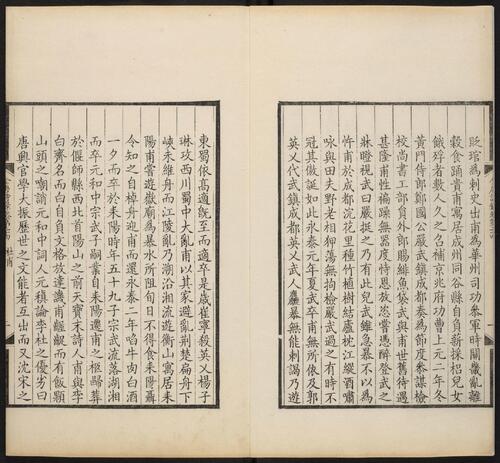 貶琯為刺史出甫為華州司功參軍時關畿亂離
穀食踴貴甫寓居成州同谷縣自負薪採梠兒女
餓殍者數人久之召補京兆府功曹上元二年冬
黃門侍郎鄭國公嚴武鎮成都奏為節度參謀檢
校尚書工部員外郎賜緋魚袋武與甫世舊待遇
甚隆甫性褊躁無器度恃恩放恣嘗憑醉登武之
牀瞪視武曰嚴挺之乃有此兒武雖急暴不以為
忤甫於成都浣花里種竹植樹結廬枕江縱酒嘯
咏與田夫野老相狎蕩無拘檢嚴武過之有時不
冠其傲誕如此永泰元年夏武卒甫無所依及郭
英乂代武鎮成都英乂武人麤暴無能刺謁乃遊
東蜀依高適既至而適卒是歲崔寧殺英乂楊子
琳攻西川蜀中大亂甫以其家避亂荊楚扁舟下
峽未維舟而江陵亂乃溯沿湘流遊衡山寓居耒
陽甫嘗遊嶽廟為暴水所阻旬日不得食耒陽聶
令知之自棹舟迎甫而還永泰二年啗牛肉白酒
一夕而卒於耒陽時年五十九子宗武流落湖湘
而卒元和中宗武子嗣業自耒陽遷甫之柩歸葬
於偃師縣西北首陽山之前天寶末詩人甫與李
白齊名而白自負文格放達譏甫齷齪而有飯顆
山頭之嘲誚元和中詞人元稹論李杜之優劣曰
唐興官學大振歷世之文能者互出而又沈宋之
杜甫